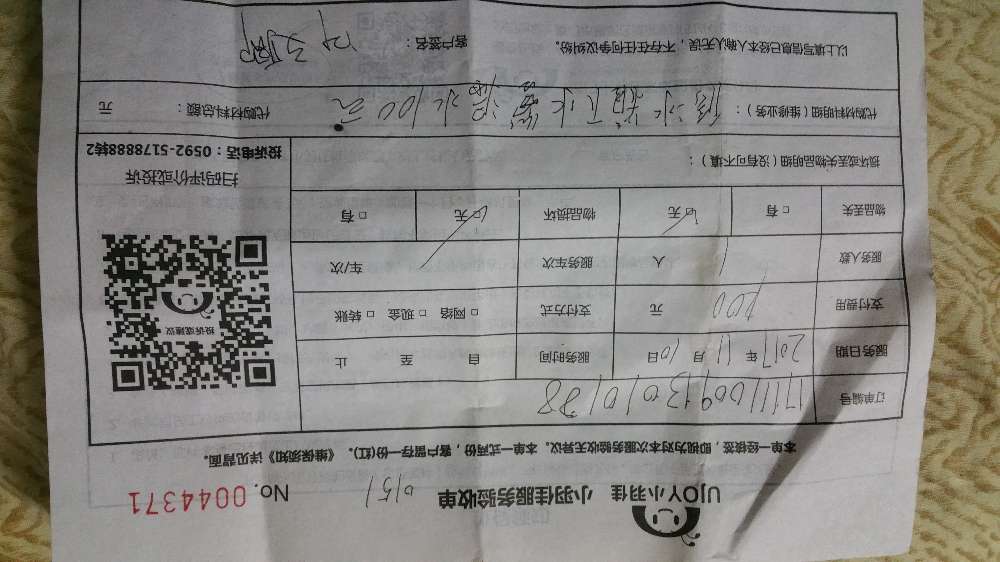 UJOY小羽佳 小羽佳服务验收单 0151 No. 0044371
本单一经核签，即视为对本次服务验收无异议。本单一式两份，客户留存一份(红)。《维保须知》详见背面。
订单编号
服务日期 2017 年 11 月 10 日 服务时间 自 至 止
支付费用 元 支付方式 □ 网络 □ 现金 □ 转账
服务人数 1 人 服务车次 车/次
物品丢失 □ 有 □ 无 物品损坏 □ 无 □ 有
损坏或丢失物品明细（没有可不填）：
投诉或建议
扫码评价或投诉
投诉电话：0592-5178888转2
代购材料明细（维修业务）： 水 下水 100元 代购材料总额： 元
以上填写信息已经本人确认无误，不存在任何争议纠纷。 客户签名：